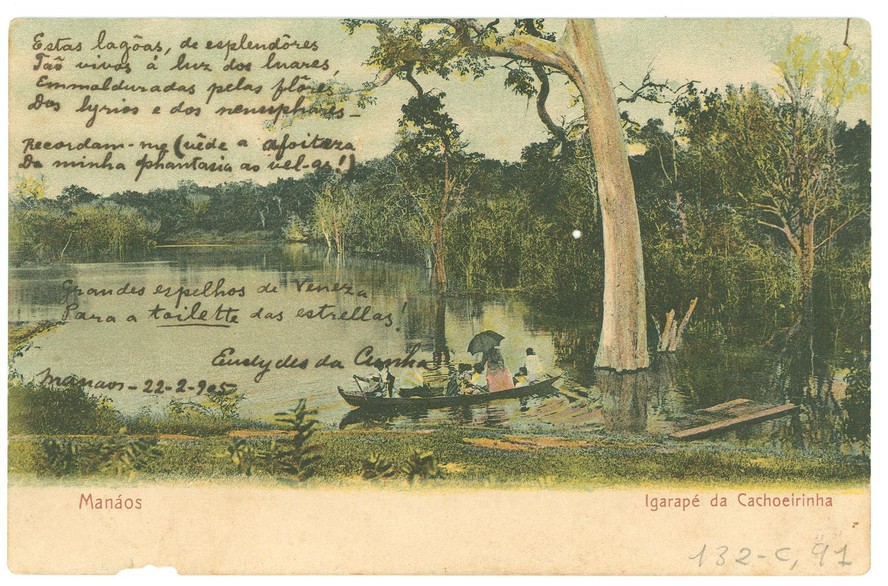 Estas lagôas, de esplendôres
Tão vivos á luz dos luares,
Emmolduradas pelas flôres
Dos lyrios e dos nenuphares –
Recordam-me (vêde a afoiteza
Da minha phantasia ao vel-as!)
Grandes espelhos de Veneza
Para a toilette das estrellas!
Euclydes da Cunha
Manaos – 22-2-905
Manáos
Igarapé da Cachoeirinha
132-C, 91